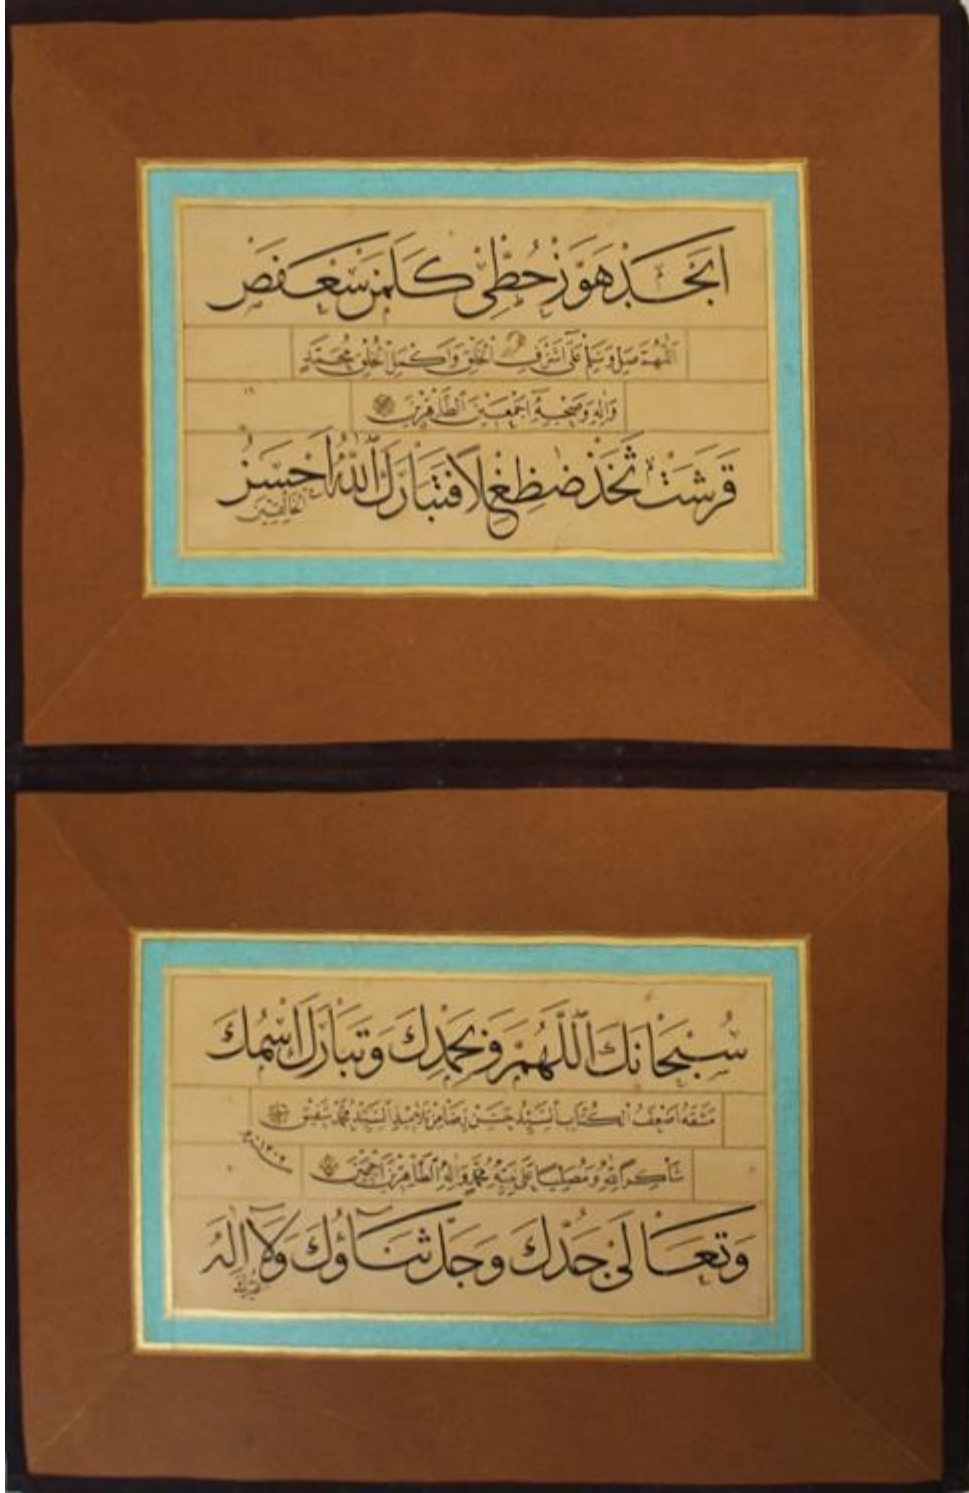 ابجد هوز حطي كلمن سعفص
اللهم صل وسلم على اشرف الخلق واكمل الخلق محمد
واله وصحبه اجمعين الطاهرين
قرشت ثخذ ضظغلا فتبارك الله احسن الخالقين
سبحانك اللهم وبحمدك وتبارك اسمك
منقه اضعف الكتاب السيد حسن رضا من تلاميذ السيد محمد شفيق
شاكرا لله ومصليا على نبيه محمد واله الطاهرين اجمعين
وتعالى جدك وجل ثناؤك ولا اله غيرك